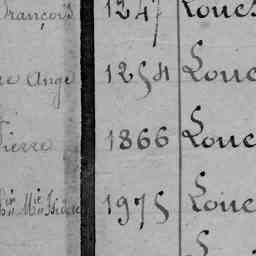 François 1247 Loue
re Ange 1254 Loue
Pierre 1866 Loue
Mie Isidore 1975 Loue